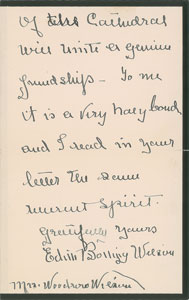 Of this Cathedral
will unite a genuine
friendship – To me
it is a very holy bond
and I read in your
letter the same
reverent spirit.
Gratefully yours
Edith Bolling Wilson
Mrs. Woodrow Wilson